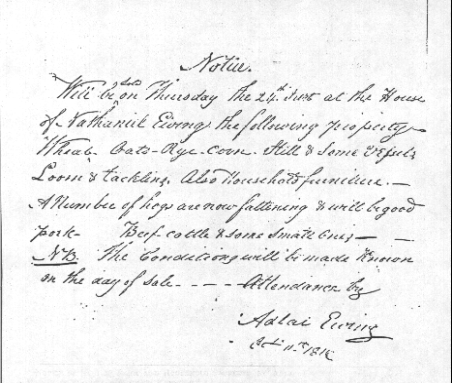 Notice.
Will be sold on Thursday the 24th Inst at the House
of Nathaniel Ewing the following property
Wheat Oats - Rye - corn. Still & Some Vessels
Loom & tackling. Also Household furniture. —
A Number of hogs are now fattening & will be good
pork Beef cattle & some small ones — —
NB. The Conditions will be made known
on the day of sale - - - - Attendance by
Adlai Ewing
Oct 11th